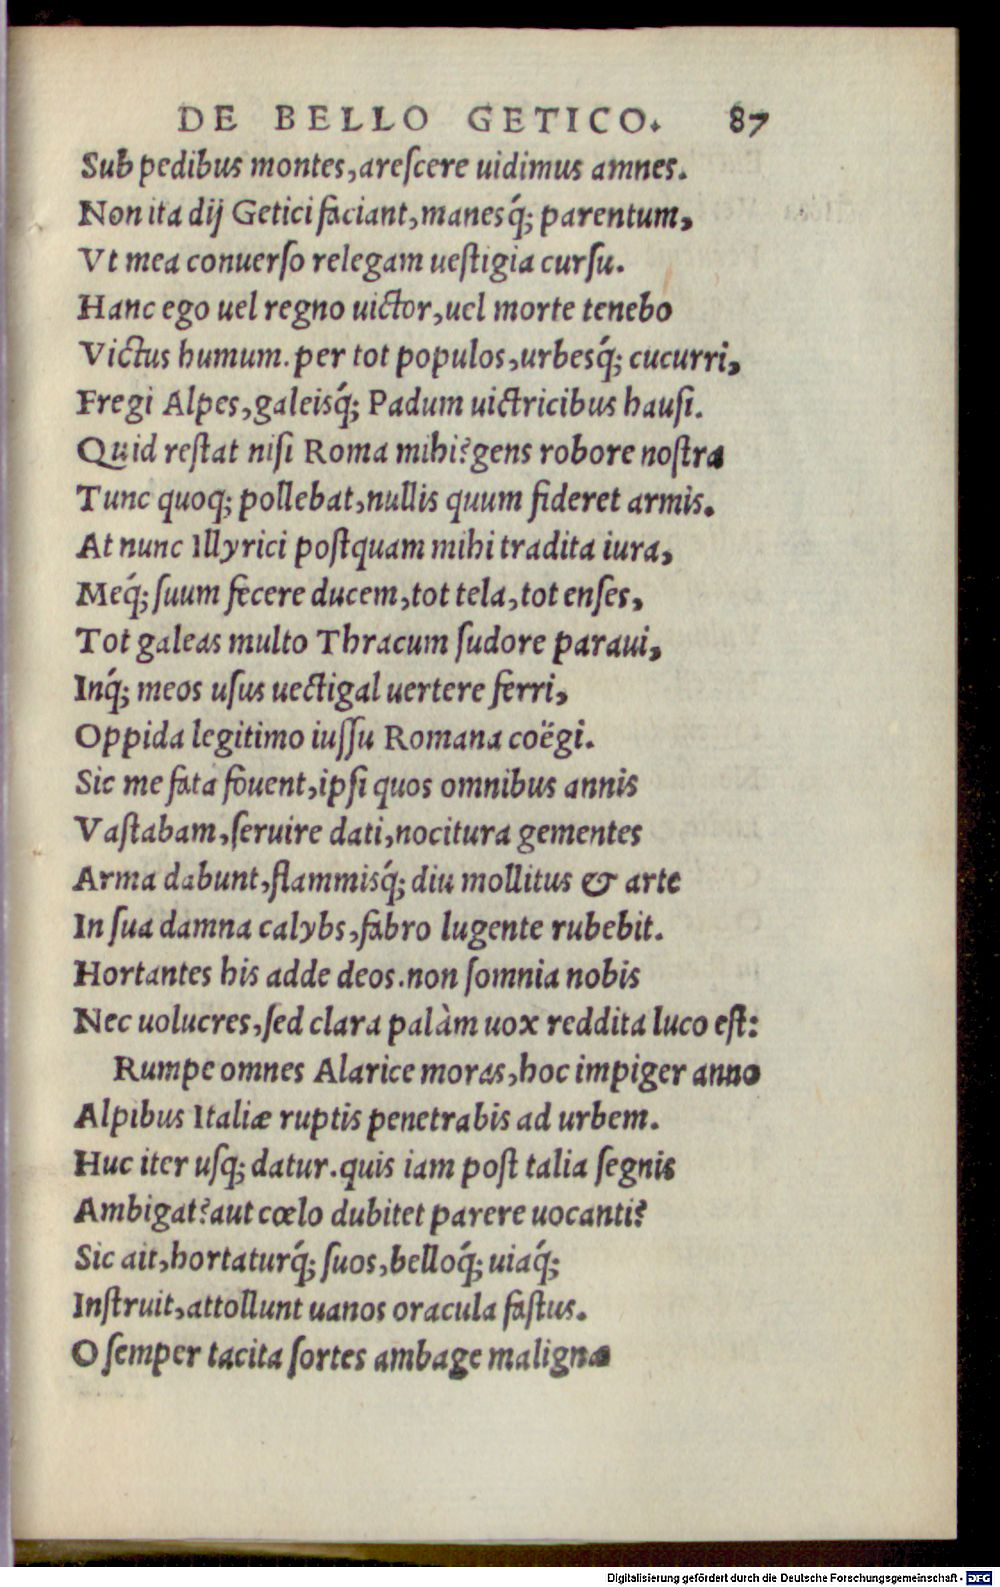 DE BELLO GETICO. 87
Sub pedibus montes, areſcere uidimus amnes.
Non ita dij Getici faciant, manesq́; parentum,
Vt mea conuerſo relegam ueſtigia curſu.
Hanc ego uel regno uictor, uel morte tenebo
Victus humum. per tot populos, urbesq́; cucurri,
Fregi Alpes, galeisq́; Padum uictricibus hauſi.
Quid reſtat niſi Roma mihi? gens robore noſtra
Tunc quoq; pollebat, nullis quum fideret armis.
At nunc Illyrici poſtquam mihi tradita iura,
Meq́; ſuum fecere ducem, tot tela, tot enſes,
Tot galeas multo Thracum ſudore paraui,
Inq́; meos uſus uectigal uertere ferri,
Oppida legitimo iuſſu Romana coëgi.
Sic me fata fouent, ipſi quos omnibus annis
Vaſtabam, ſeruire dati, nocitura gementes
Arma dabunt, flammisq́; diu mollitus & arte
In ſua damna calybs, fabro lugente rubebit.
Hortantes his adde deos. non ſomnia nobis
Nec uolucres, ſed clara palàm uox reddita luco eſt:
Rumpe omnes Alarice moras, hoc impiger anno
Alpibus Italiæ ruptis penetrabis ad urbem.
Huc iter uſq; datur. quis iam poſt talia ſegnis
Ambigat? aut cœlo dubitet parere uocanti?
Sic ait, hortaturq́; ſuos, belloq́; uiaq́;
Inſtruit, attollunt uanos oracula faſtus.
O ſemper tacita ſortes ambage maligna
Digitalisierung gefördert durch die Deutsche Forschungsgemeinschaft - DFG